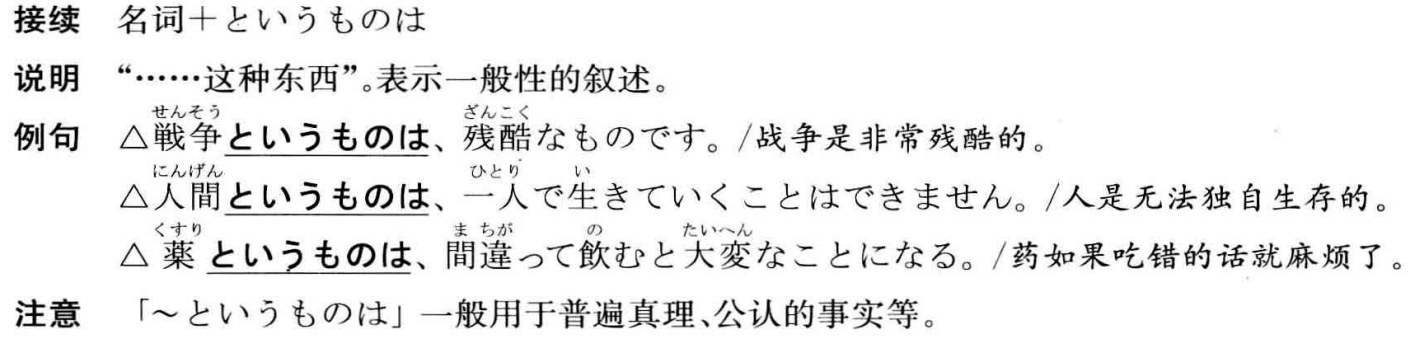 接续 名词＋というものは
说明 “……这种东西”。表示一般性的叙述。
せんそう ざんこく
例句 △戦争というものは、残酷なものです。/战争是非常残酷的。
にんげん ひとり い
△人間というものは、一人で生きていくことはできません。/人是无法独自生存的。
くすり まちが の たいへん
△薬というものは、間違って飲むと大変なことになる。/药如果吃错的话就麻烦了。
注意 「～というものは」一般用于普遍真理、公认的事实等。